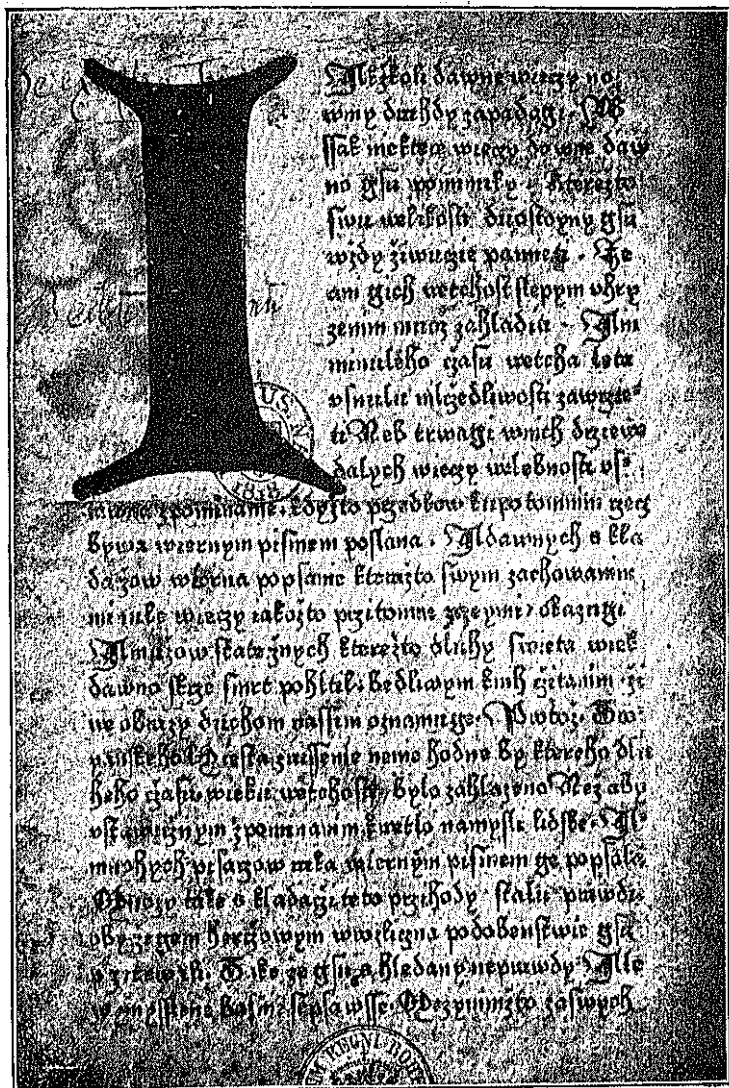 Ačžkoli dawne wieczy no
wmy duchdy zapadagi. W
ssak niektere wieczy dawne daw
no gsu pominuly. kterežto
swu welikosti duostoyny gsu
wždy žiwucze pamieti. Že
ani gich wetchost slepym vhry
zenim muož zahladiti. Ani
minuleho czasu wetcha leta
vsnulu mlczedliwosti zawrzie
ti Neb trwagi wnich drziewe
dalych wieczy welebnosti vs
zpominanie. kdyžto przedkow potomnim rzecz
bywa wiernym pismem poslana. A dawnych skla
daczow wierna popsanie kterazto swym zachowanim
minule wieczy iakožto przitomne okazugi
A mužow statečnych kterežto dluhy swieta wiek
dawno skrze smrt pohltil. bedliwym knih czitanim ži
we obrazy duchom nassim oznamuge. Protož Tro
yanskeho Miesta zrussenie nenie hodne by ktereho dlu
heho czasu wieku wetchosti bylo zahlazeno Než aby
vstawicznym zpominanim kwetlo namysli lidske. A
mnohych pisarzow ruka wiernym pismem ge popsala
Mnozy take skladagicz teto przihody stalu prawdu
obyczegem herczowym podobenstwie gsu
Take ze gsu neprawdy Alle
basni sepsawsse. Mezynimižto zaswych